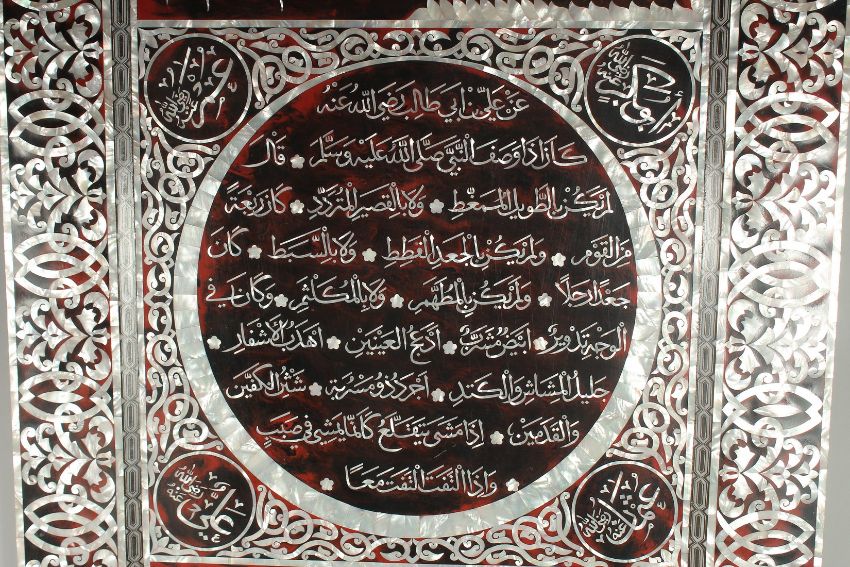 أبو بكر رضي الله عنه
عمر رضي الله عنه
عن علي بن أبي طالب رضي الله عنه
كان إذا وصف النبي صلى الله عليه وسلم قال
لم يكن بالطويل الممغط ولا بالقصير المتردد كان ربعة
من القوم ولم يكن بالجعد القطط ولا بالسبط كان
جعدا رجلا ولم يكن بالمطهم ولا بالمكلثم وكان في
الوجه تدوير أبيض مشرب أدعج العينين أهدب الأشفار
جليل المشاش والكتد أجرد ذو مسربة شثن الكفين
والقدمين إذا مشى تقلع كأنما يمشي في صبب
وإذا التفت التفت معا
عثمان رضي الله عنه
علي رضي الله عنه